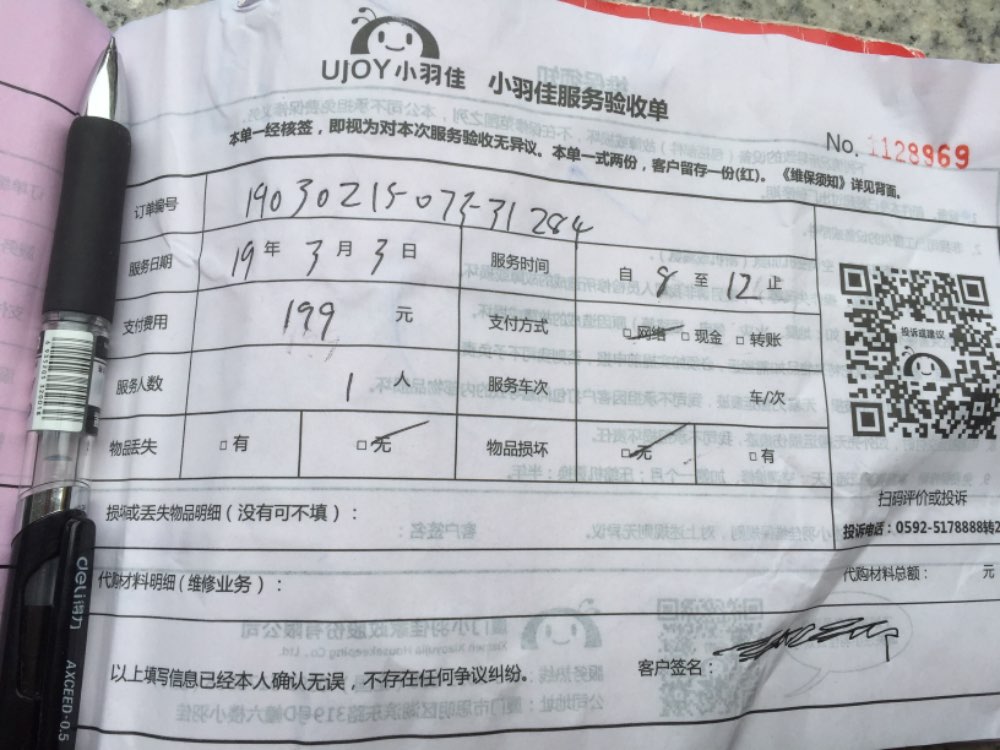 UJOY小羽佳 小羽佳服务验收单
本单一经核签，即视为对本次服务验收无异议。本单一式两份，客户留存一份(红)。《维保须知》详见背面。
No. 1128969
订单编号 19030215073-31284
服务日期 19年 3月 3日 服务时间 自 8 至 12 止
支付费用 199 元 支付方式 □网络 □现金 □转账
服务人数 1 人 服务车次 车/次
物品丢失 □有 □无 物品损坏 □无 □有
投诉或建议
扫码评价或投诉
投诉电话：0592-5178888转2
损坏或丢失物品明细（没有可不填）：
代购材料明细（维修业务）： 代购材料总额： 元
以上填写信息已经本人确认无误，不存在任何争议纠纷。 客户签名：
deli得力
AXCEED·0.5